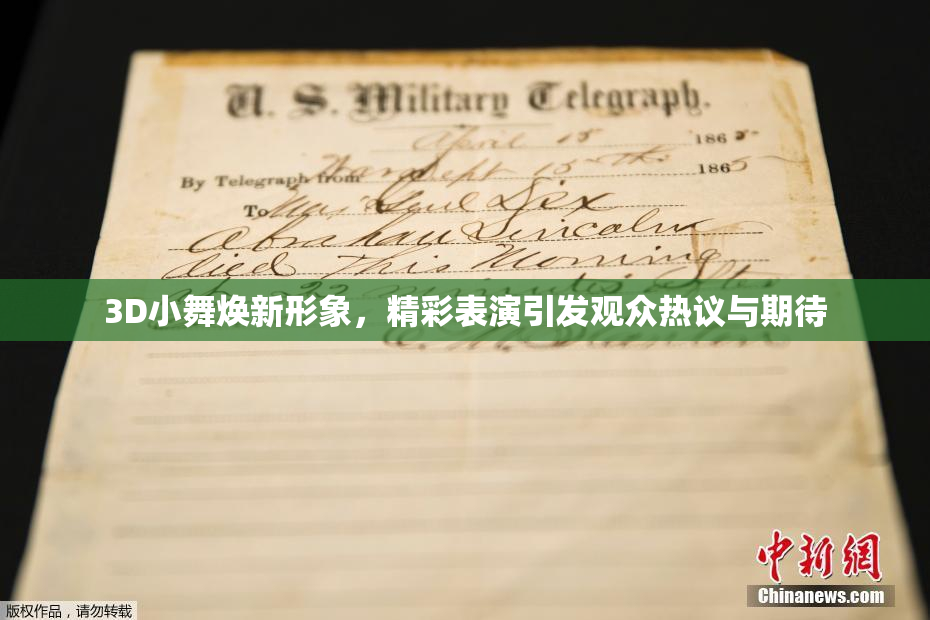 U. S. Military Telegraph.
April 15 1865
By Telegraph from War Dept 15th 1865
To Maj Genl Dix
Abraham Lincoln
died This Morning
at 22 minutes after
3D小舞焕新形象，精彩表演引发观众热议与期待
E. M. Stanton
中新网
Chinanews.com
版权作品，请勿转载